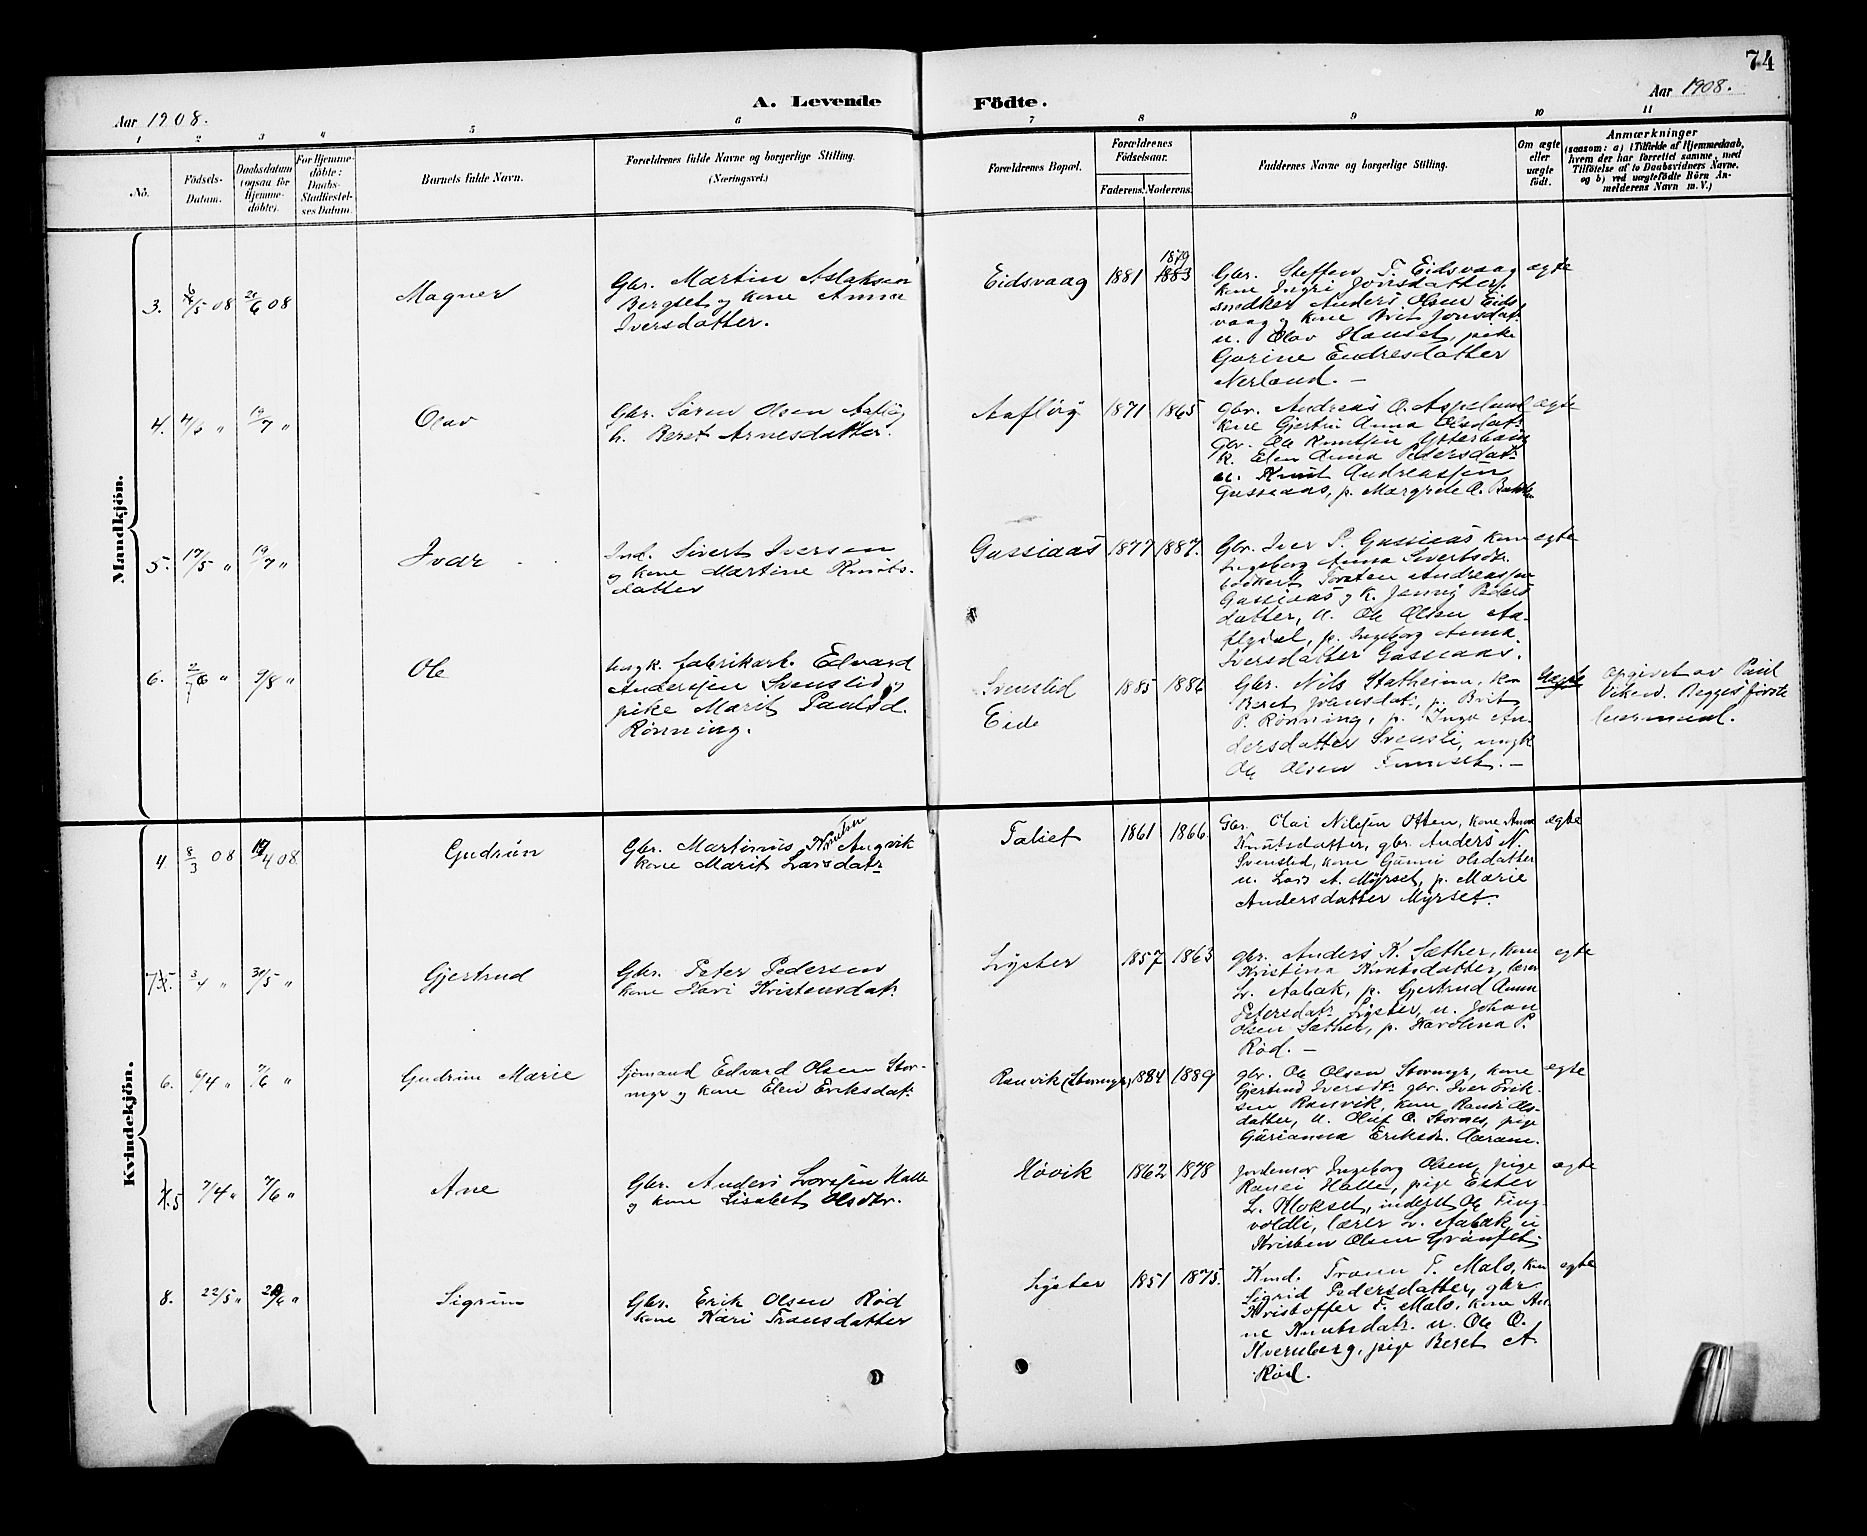 74
A. Levende Födte.
Aar 1908.
Aar 1908.
1 2 3 4 5 6 7 8 9 10 11
No.
Födsels-Datum.
Daabsdatum (ogsaa for Hjemme-döbte).
For Hjemme-döbte: Daabs-Stadfæstel-ses Datum.
Barnets fulde Navn.
Forældrenes fulde Navne og borgerlige Stilling.
(Næringsvei.)
Forældrenes Bopæl.
Forældrenes Födselsaar.
Faderens. Moderens.
Faddernes Navne og borgerlige Stilling.
Om ægte eller uægte födt.
Anmærkninger
(saasom: a) i Tilfælde af Hjemmedaab,
hvem der har forrettet samme, med
Tilföielse af to Daabsvidners Navne,
og b) ved uægtefödte Börn An-
melderens Navn m. V.)
Mandkjön.
3. 6/5 08 21/6 08 Magner
Gbr. Martin Aslaksen
Bergset og kone Anna
Iversdatter.
Eidsvaag 1881 1879 1883
Gbr. Steffen T. Eidsvaag
kone Ingri Jonsdatter,
snedker Anders Olsen Eids
vaag og kone Brit Jonsdat.
u. Olav Hauset, pike
Gurine Endresdatter
Nerland. —
ægte
4. 4/6 " 19/7 " Olav
Gbr. Sören Olsen Aaflöy
h. Beret Arnesdatter.
Aaflöy 1871 1865
Gbr. Andreas O. Aspelund
kone Gjertru Anna Olsdat.
Gbr. Ole Knutsen
k. Elen Anna Pedersdat.
u. Knut Andreassen
Gussiaas, p. Margrete O.
ægte
5. 17/5 " 19/7 " Ivar
Ind. Sivert Iversen
og kone Martine Knuts-
datter
Gussiaas 1877 1887.
Gbr. Iver P. Gussiaas kone
Ingeborg Anna Sivertsdr.
Torsten Andreassen
Gussiaas og k. Jenny Peders
datter, u. Ole Olsen Aa-
flydal, p. Ingeborg Anna
Iversdatter Gussiaas.
ægte
6. 2/6 " 9/8 " Ole
Ungk. fabrikarb. Edvard
Andersen Svenslid og
pike Marit Paulsd.
Rönning.
Svenslid
Eide
1885 1886
Gbr. Nils Statheim, kone
Beret Jonsdat., p. Brit
P. Rönning, p. Inga An-
dersdatter Svensli, ungk
Ole Olsen
Uegte
Opgivet av Paul
Viken. Begges förste
leiermaal.
Kvindekjön.
4 8/3 08 19/4 08 Gudrun
Gbr. Martinus Knutsen Angvik
kone Marit Larsdatr
Talset 1861 1866
Gbr. Olai Nilssen Otten, kone Anna
Knutsdatter, gbr. Anders N.
Svenslid, kone Gunni Olsdatter
u. Lars A. Myrset, p. Marie
Andersdatter Myrset.
ægte
7. 3/4 " 31/5 " Gjertrud
Gbr. Peter Pedersen
kone Kari Kristensdat.
Lyster 1857 1863
gbr. Anders K. Sæther, kone
Kristina Knutsdatter, lærer
L. Aabak, p. Gjertrud Anna
Petersdatr. Lyster, u. Johan
Olsen Sæther, p. Karolina P.
Röd. —
egte
6. 6/4 " 7/6 " Gudrun Marie
Sjömand Edvard Olsen Stor-
myr og kone Elen Eriksdat.
Ranvik (Stormyr) 1884 1889
gbr. Ole Olsen Stormyr, kone
Gjertrud Iversdt. gbr. Iver Erik-
sen Ranvik, kone Randi Ols-
datter, u. Oluf O. Stormyr, pige
Gurianna Eriksdr. Aaram.
ægte
5 7/4 " 7/6 " Ane
Gbr. Anders Larssen Halle
og kone Lisabet Olsdtr.
Hövik 1862 1878
Jordemor Ingeborg Olsen, pige
Ranei Halle, pige Ester
L. Klokset, inderst Ole Ting-
voldli, lærer L. Aabak, u
Kristen Olsen Grönset.
ægte
8. 22/5 " 28/6 " Sigrun
Gbr. Erik Olsen Röd
kone Kari Tronsdatter
Lyster 1851 1875.
Kmd. Tronn T. Malo, kone
Sigrid Pedersdatter, gbr
Kristoffer F. Malo, kone An-
ne Knutsdatr. u. Ole O.
Kvernberg, pige Beret A
Röd.
egte